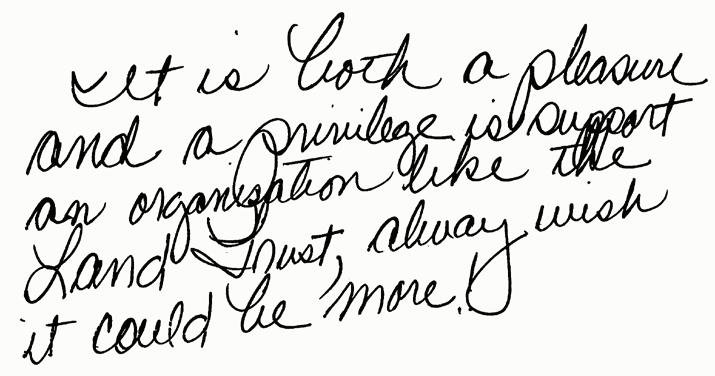 It is both a pleasure
and a privilege is support
an organisation like the
Land Trust, alway wish
it could be more!